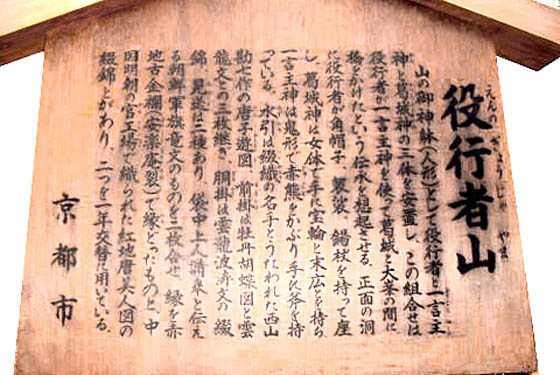 役行者山
えんのぎょうじゃやま
山の御神躰(人形)として役行者と一言主
神と葛城神の三体を安置し、この組合せは
役行者が一言主神を使って葛城と大峯の間に
橋をかけたという伝承を想起させる。正面の洞
に役行者が角帽子、袈裟、錫杖を持って座
し、葛城神は女体で手に宝輪と末広を持ち
一言主神は鬼形で赤熊をかぶり手に斧を持
っている。水引は綴織の名手とうたわれた西山
勘七作の唐子遊図、前掛は牡丹胡蝶図と雲
龍文との三枚継ぎ、胴掛は雲龍波濤文の綴
錦、見送は二種あり、袋中上人請来と伝え
る朝鮮軍旗竜文のものを二枚合せ、縁を赤
地古金襴(安楽庵裂)で縁どったものと、中
国明朝の官工場で織られた紅地唐美人図の
綴錦とがあり、二つを一年交替に用いている。
京都市